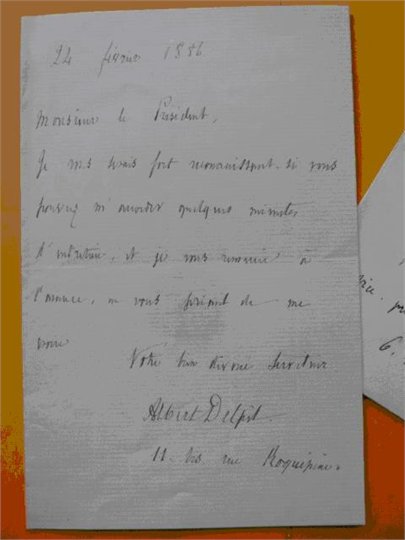 24 février 1886
Monsieur le Président,
Je vous serais fort reconnaissant si vous
pouviez m'accorder quelques minutes
d'entretien, et je vous remercie à
l'avance, en vous priant de me
croire
Votre bien dévoué serviteur
Albert Delpit
11 bis rue Roquépine